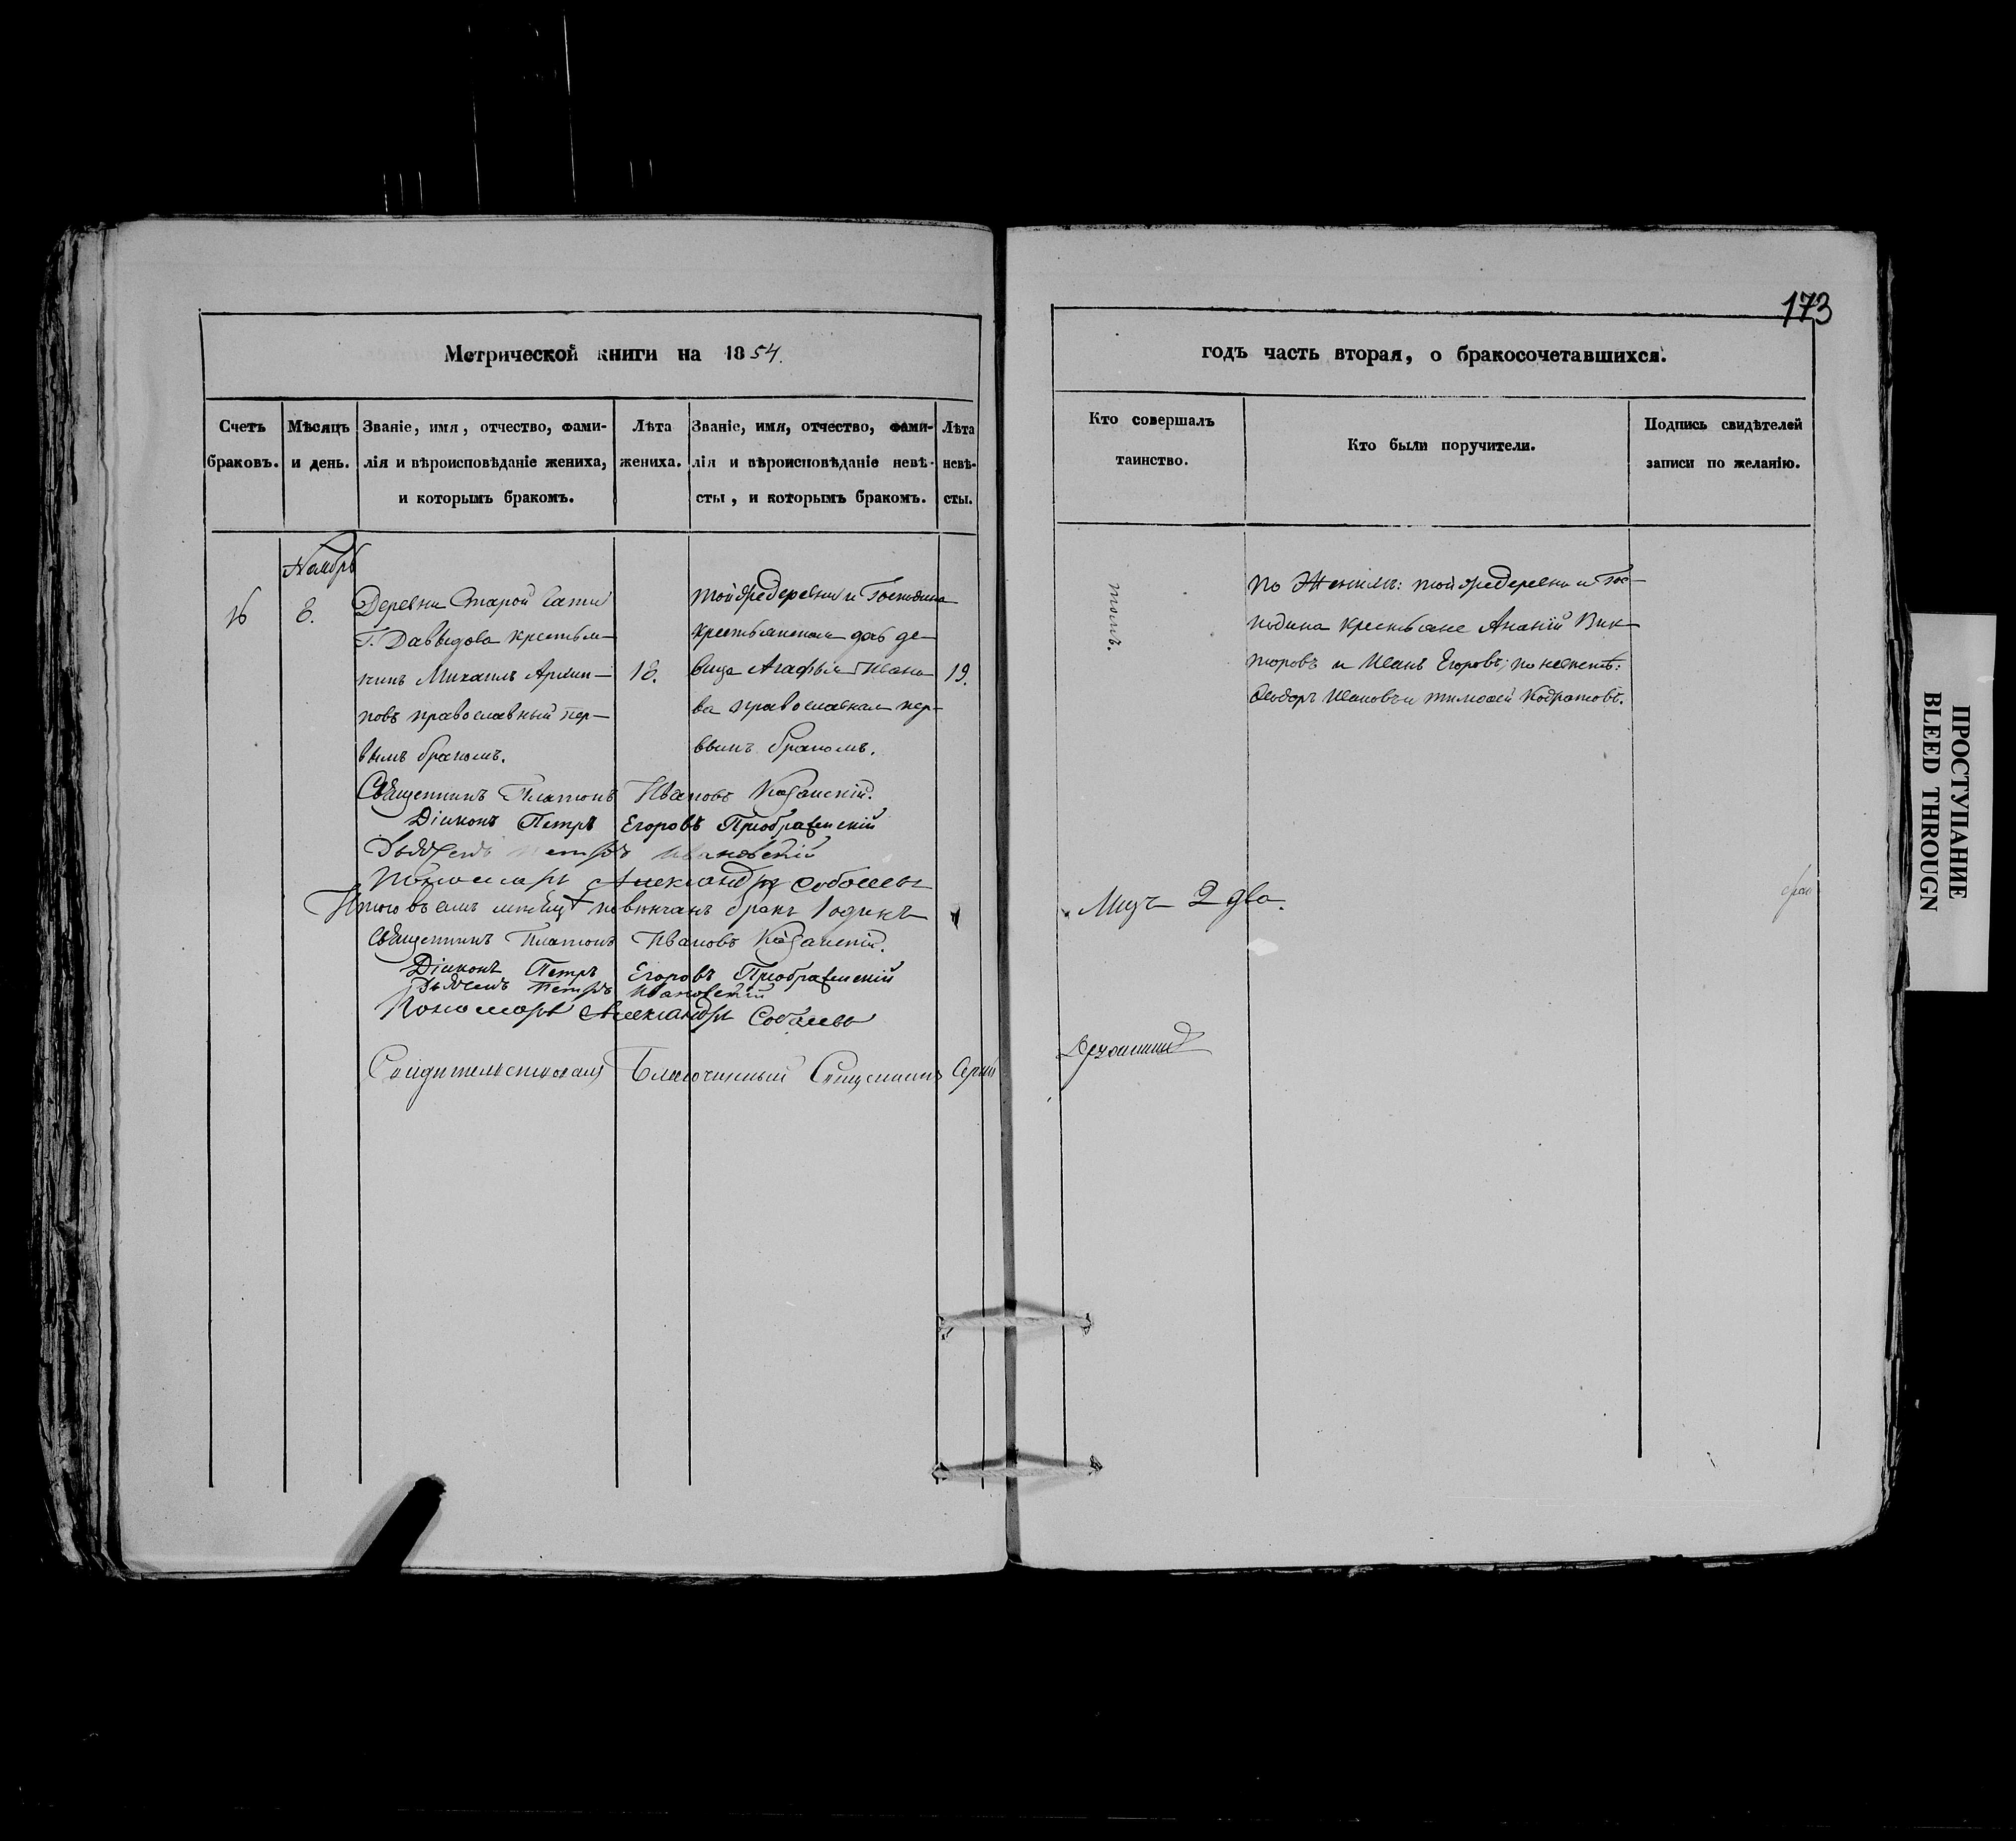 173
Метрической книги на 1854.
годъ часть вторая, о бракосочетавшихся.
Счетъ браковъ.
Мѣсяцъ и день.
Званіе, имя, отчество, фами-
лія и вѣроисповѣданіе жениха,
и которымъ бракомъ.
Лѣта
жениха.
Званіе, имя, отчество, фами-
лія и вѣроисповѣданіе невѣ-
сты, и которымъ бракомъ.
Лѣта
невѣ-
сты.
Кто совершалъ
таинство.
Кто были поручители.
Подпись свидѣтелей
записи по желанію.
Ноябрь
16
8.
Деревни Старой
Г. Давыдова крестья-
нинъ Михаилъ Архип-
повъ православный пер-
вымъ бракомъ.
18.
той же деревни и Господина
крестьянская дочь де-
вица Агафья Ивано-
ва православная пер-
вымъ бракомъ.
19.
тѣмъ.
По Женихѣ: той же деревни и Гос-
подина крестьяне Ананій Вик-
торовъ и Иванъ Егоровъ; по невѣстѣ:
Ѳеодоръ Ивановъ и Тимоѳей Кодратовъ.
Священникъ Платонъ Ивановъ Казанскій.
Діаконъ Петръ Егоровъ Преображенскій
Дьячекъ Петръ Ивановскій
Пономарь Александръ Соболевъ
Итого въ семъ мѣсяцѣ повѣнчанъ бракъ 1 одинъ
Лицъ 2 два.
Священникъ Платонъ Ивановъ Казанскій.
Діаконъ Петръ Егоровъ Преображенскій
Дьячекъ Петръ Ивановскій
Пономарь Александръ Соболевъ
Свидѣтельствовалъ Благочинный Священникъ
ПРОСТУПАНИЕ
BLEED THROUGN